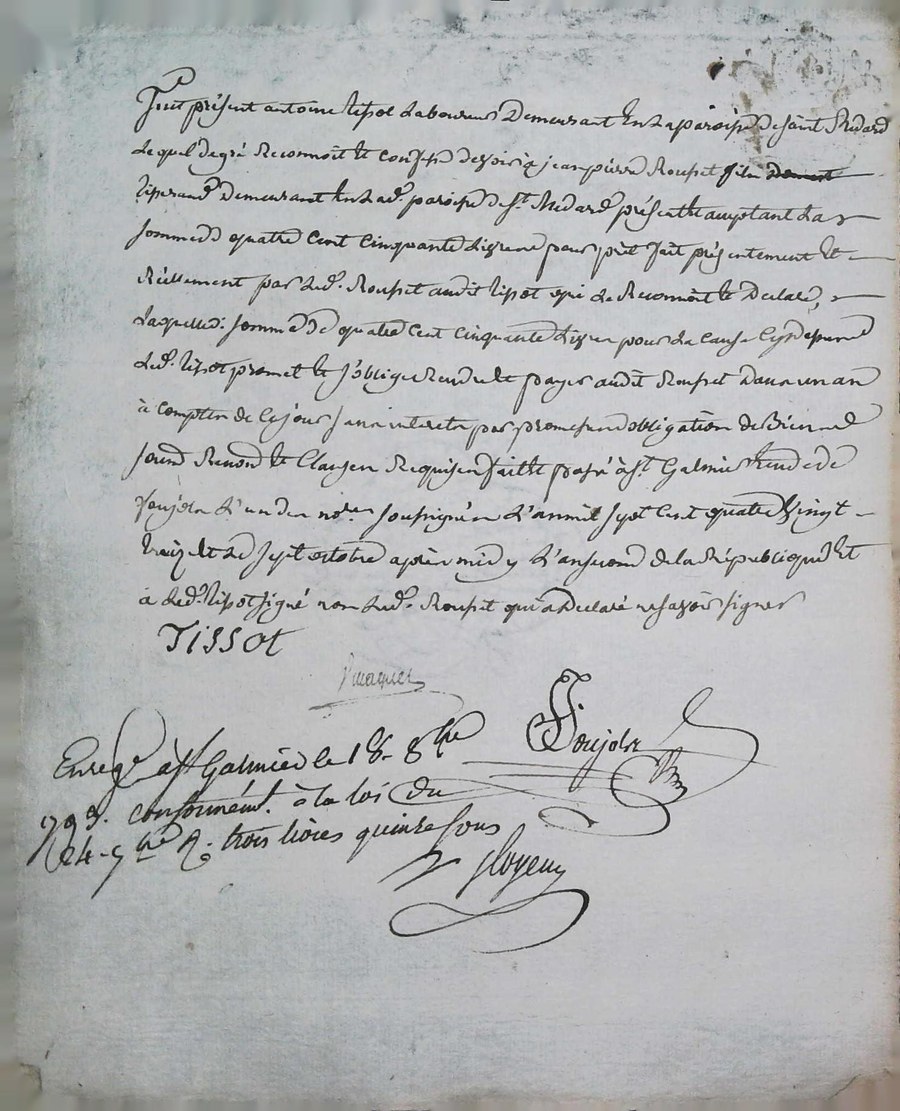 Fut présent antoine tissot Laboureur Demeurant En La paroisse De saint Medard
Lequel de gré Reconnoit Et confesse devoir à jean pierre Rousset fils
Demeurant En Lad. paroisse De St. Medard présent Et acceptant La
somme de quatre cent cinquante Livres pour prêt fait présentement Et
Réellement par Led. Rousset audit tissot qui Le Reconnoit Et Declare,
Laquelle somme De quatre cent cinquante Livres pour La Cause
Led. tissot promet Et s'oblige Rendre Et payer audit Rousset Dans un an
à compter de Ce jour sans interets par promesse obligation de Biens
soumd Renond Et Clauses Requises fait Et passé à St. Galmier Etude de
Poujola L'un des nores soussignés L'an mil sept cent quatre vingt
treize Et Le sept octobre après midy L'an second de la République Et
à Led. tissot signé non Led. Rousset qui a Declaré ne savoir signer
TISSOt
Poujola
Enregé à St Galmier le 18 8bre
1793. conformémt. à la loi du
24 - 7bre R. trois livres quinze sous